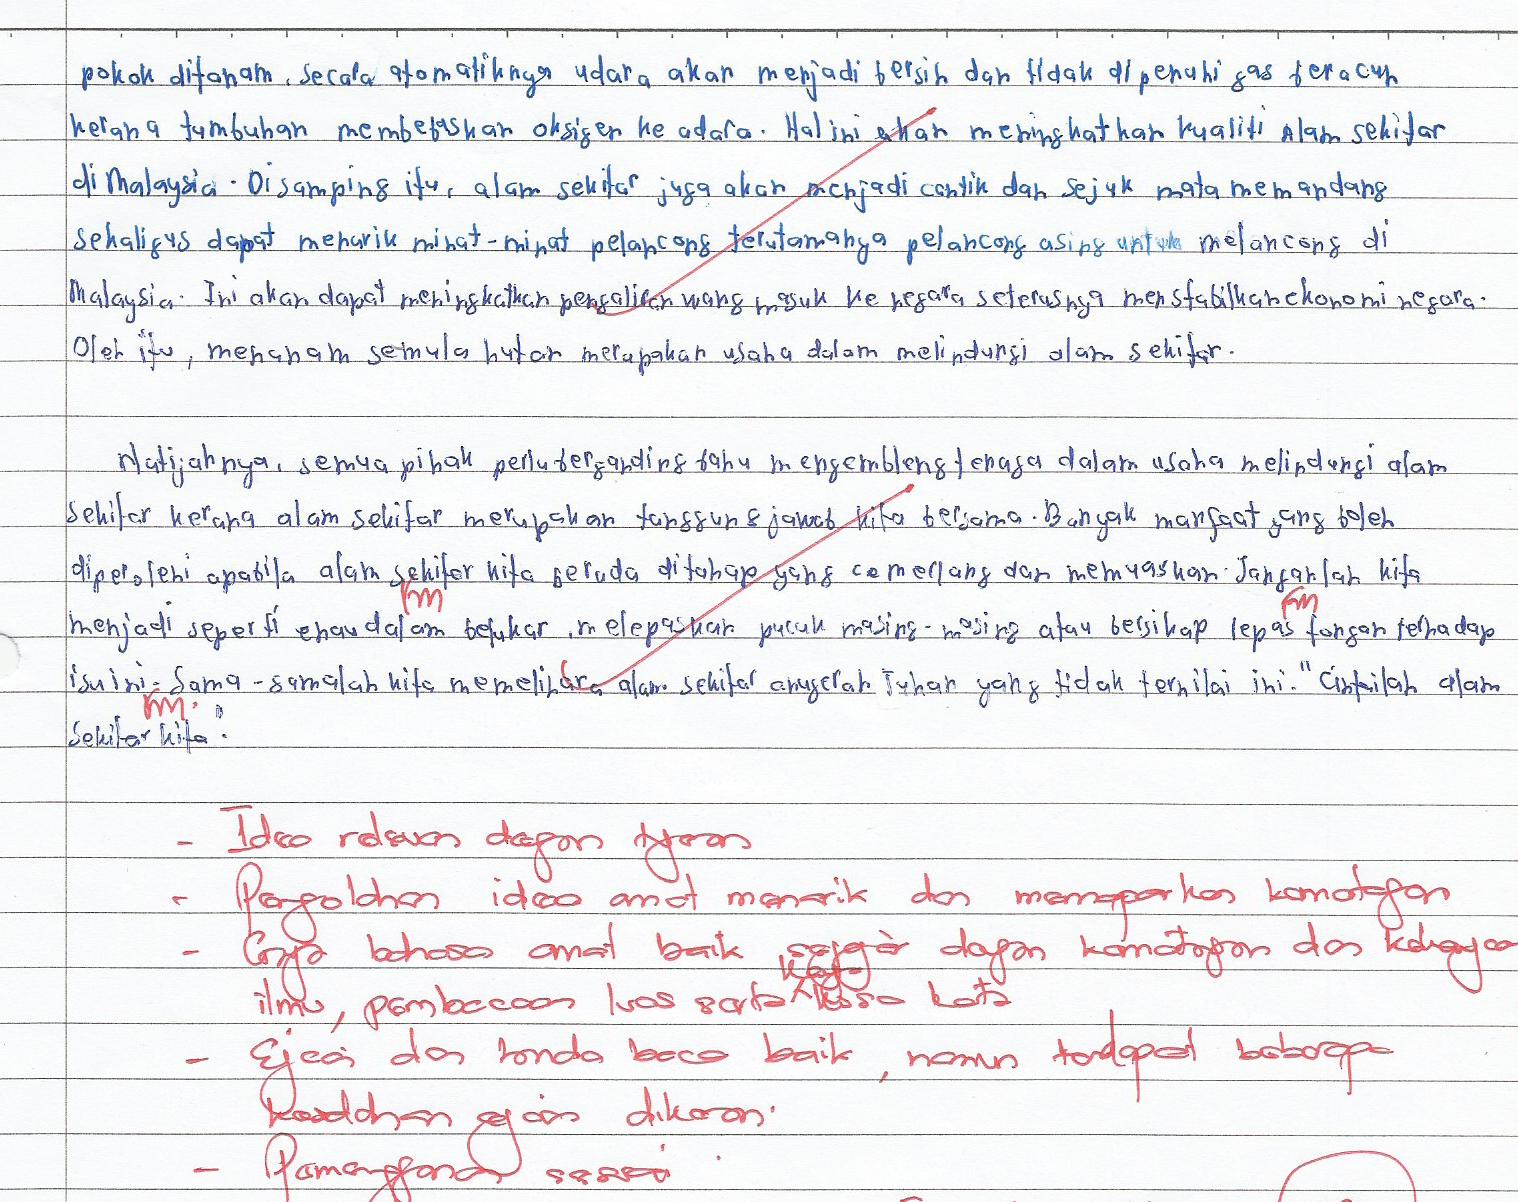 pokok ditanam, secara atomatiknya udara akan menjadi bersih dan tidak dipenuhi gas beracun
kerana tumbuhan membebaskan oksigen ke adara. Hal ini akan meningkatkan kualiti Alam sekitar
di Malaysia. Disamping itu, alam sekitar juga akan menjadi cantik dan sejuk mata memandang
sekaligus dapat menarik minat-minat pelancong terutamanya pelancong asing untuk melancong di
Malaysia. Ini akan dapat meningkatkan pengaliran wang masuk ke negara seterusnya menstabilkan ekonomi negara.
Oleh itu, menanam semula hutan merupakan usaha dalam melindungi alam sekitar.
Natijahnya, semua pihak perlu berganding bahu mengembleng tenaga dalam usaha melindungi alam
sekitar kerana alam sekitar merupakan tanggungjawab kita bersama. Banyak manfaat yang boleh
diperolehi apabila alam sekitar kita berada ditahap yang cemerlang dan memuaskan. Janganlah kita
menjadi seperti enau dalam belukar, melepaskan pucuk masing-masing atau bersikap lepas tangan terhadap
isu ini. Sama-samalah kita memelihara alam sekitar anugerah Tuhan yang tidak ternilai ini. "Cintailah alam
sekitar kita".
- Idea relevan dengan tajaan
- Pengolahan idea amat menarik dan memaparkan kematangan
- Gaya bahasa amat baik sejajar dengan kematangan dan kekayaan
ilmu, pembacaan luas serta kosa kata
- Ejaan dan tanda baca baik, namun terdapat beberapa
kesalahan ejaan dikesan.
- Pemenggalan sesuai